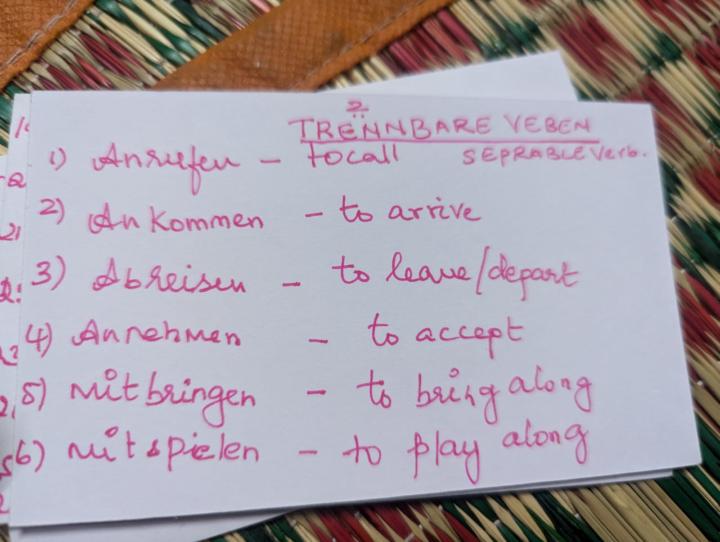 2
TRËNNBARE VEBEN
SEPRABLE Verb.
1) Anrufen - to call
2) Ankommen - to arrive
3) Abreisen - to leave/depart
4) Annehmen - to accept
5) mitbringen - to bring along
6) mitspielen - to play along